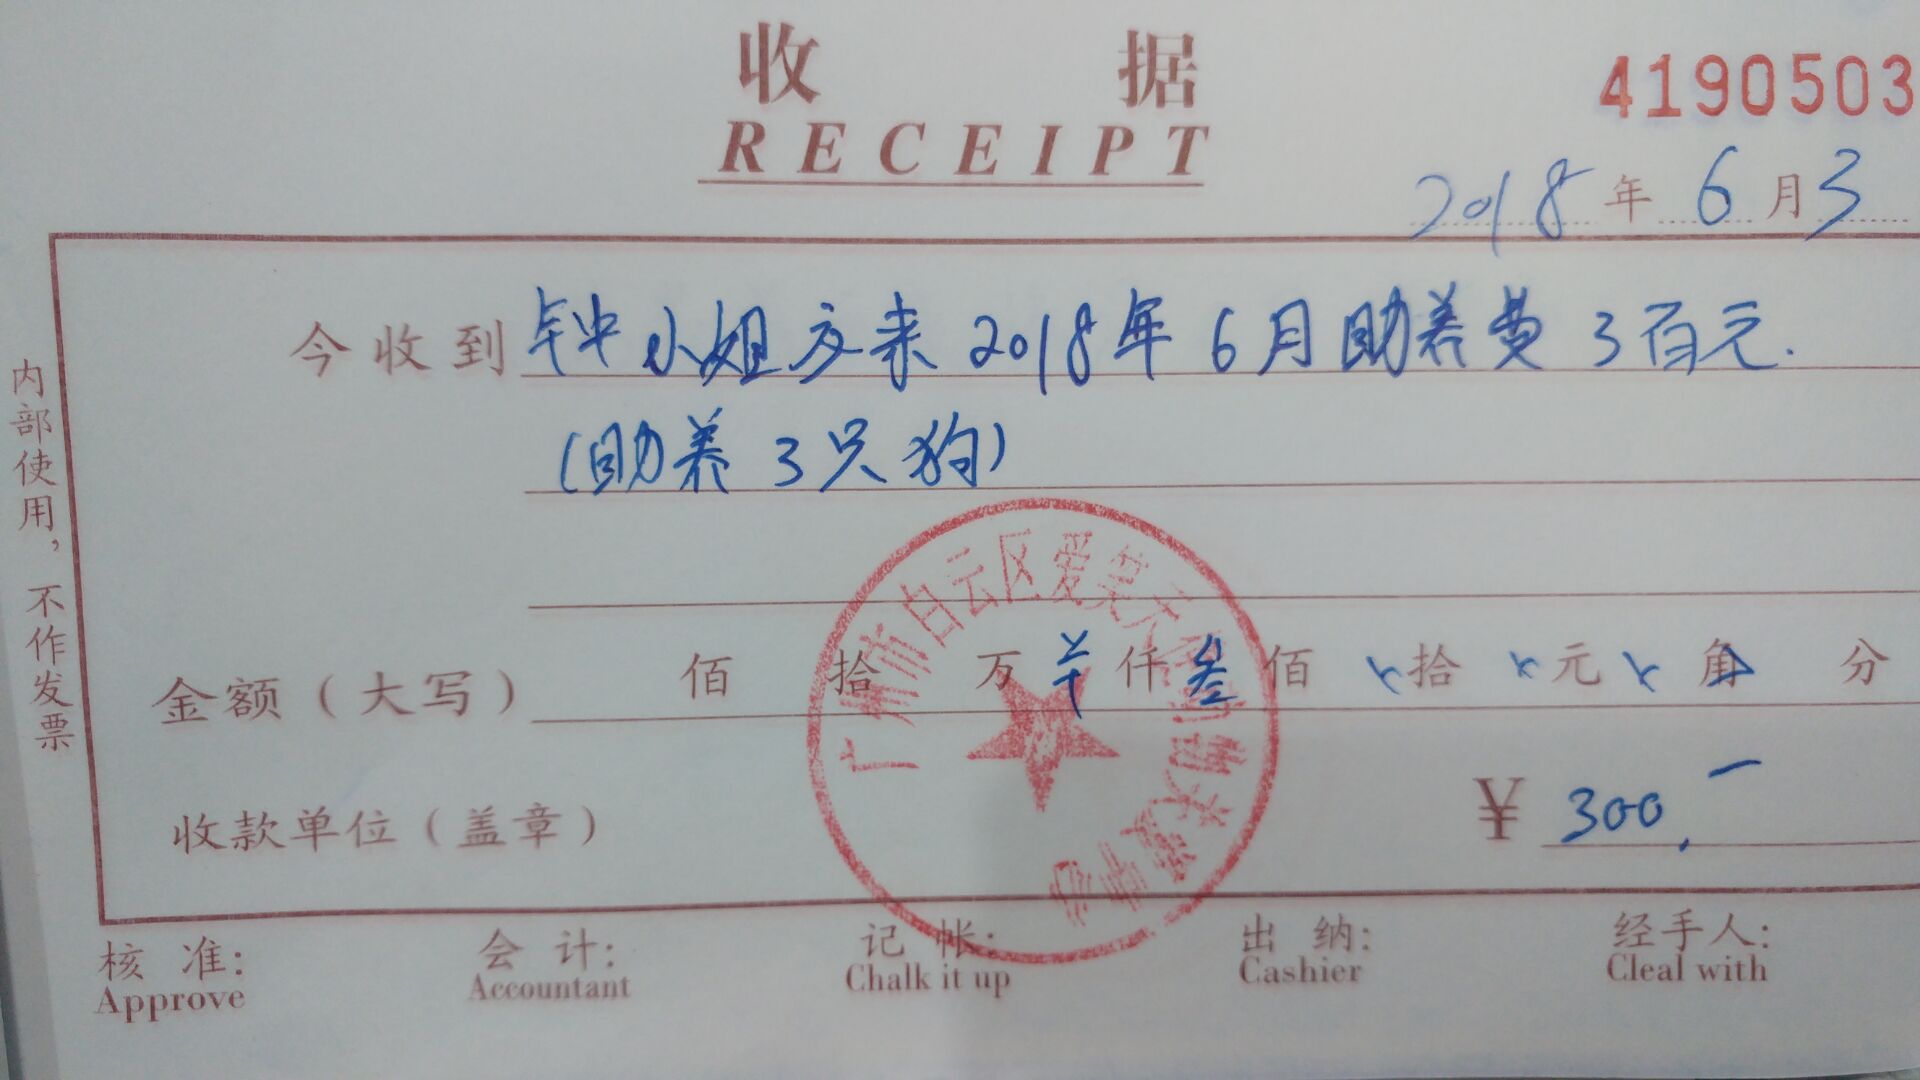 收 据
RECEIPT
4190503
2018年6月3
今收到 钟小姐交来2018年6月助养费3百元.
(助养3只狗)
金额(大写) 佰 拾 万 仟叁佰 拾 元 角 分
收款单位(盖章) ¥ 300.一
广州市白云区爱
关爱中心
内部使用，不作发票
核 准: 会 计: 记 帐: 出 纳: 经手人:
Approve Accountant Chalk it up Cashier Cleal with